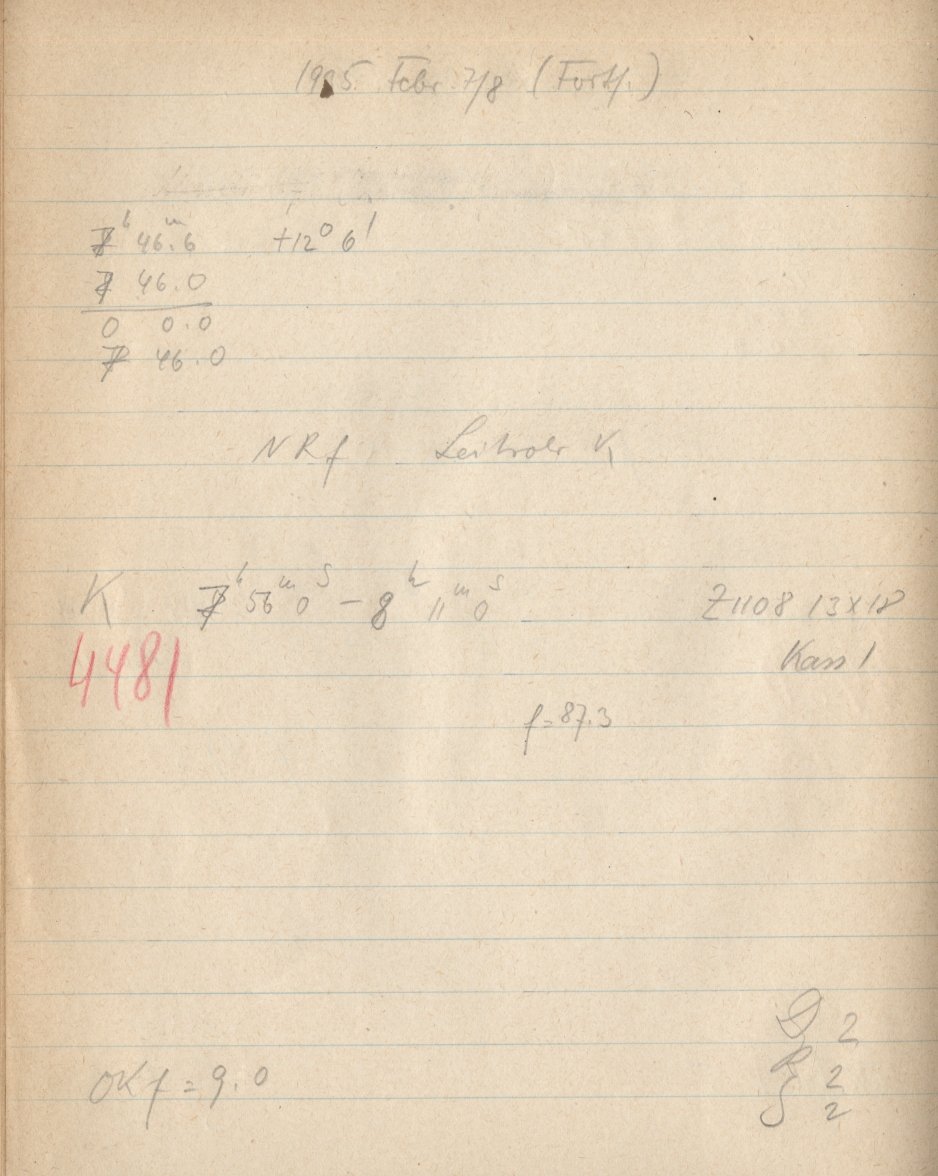 Febr. 7/8 (Fortf.)
7ʰ 46.ᵐ6 +12° 6'
7 46.0
0 0.0
7 46.0
NRf Leitrohr K
K 7ʰ 56ᵐ 0ˢ – 8ʰ 11ᵐ 0ˢ Z1108 13x18
4481 Kass 1
f = 87.3
D 2
R 2
OK f = 9.0
S 2